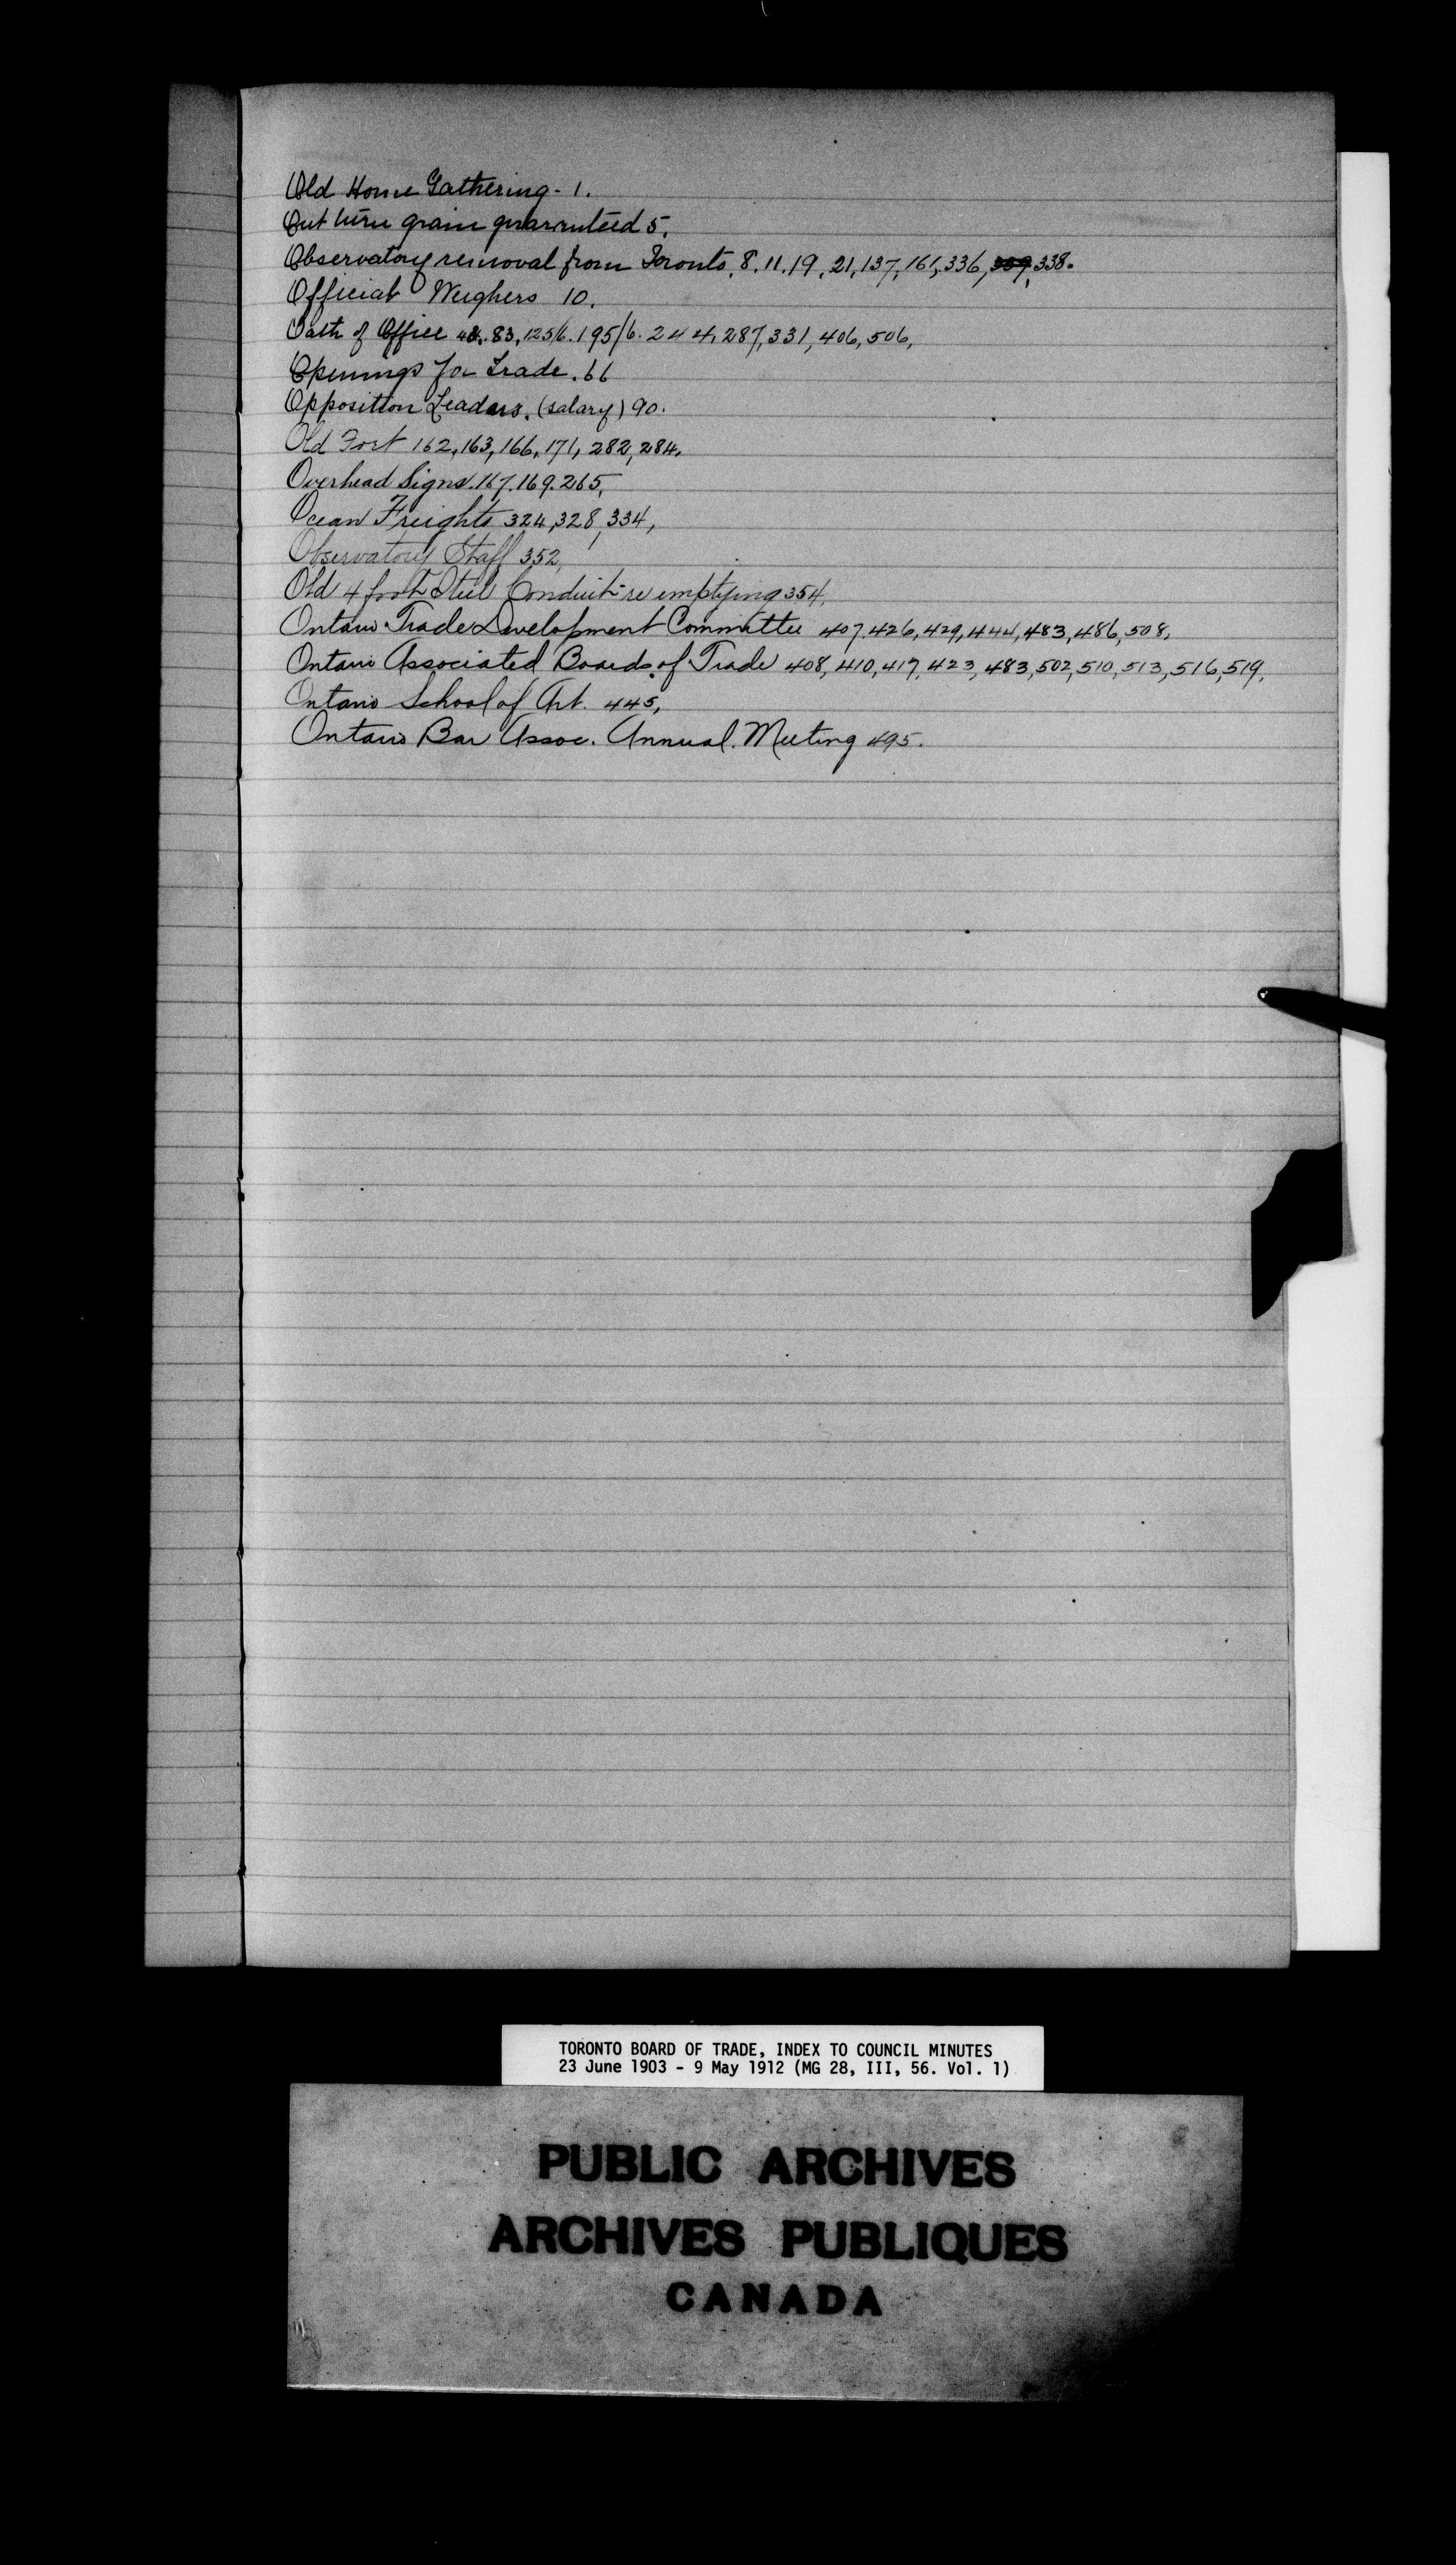 Old Home Gathering - 1.
Out turn grain guaranteed 5.
Observatory removal from Toronto. 8. 11. 19, 21, 137, 161, 336, 338.
Official Weighers 10.
Oath of Office 83, 125/6. 195/6. 244, 287, 331, 406, 506,
Openings for Trade. 66
Opposition Leaders. (salary) 90.
Old Fort 162, 163, 166, 171, 282, 284.
Overhead Signs. 167. 169. 265,
Ocean Freights 324, 328, 334,
Observatory Staff 352,
Old 4 foot Steel Conduit - re emptying 354,
Ontario Trade Development Committee 407, 426, 429, 444, 483, 486, 508,
Ontario Associated Boards of Trade 408, 410, 417, 423, 483, 502, 510, 513, 516, 519,
Ontario School of Art. 445,
Ontario Bar Assoc. Annual. Meeting 495.
TORONTO BOARD OF TRADE, INDEX TO COUNCIL MINUTES
23 June 1903 - 9 May 1912 (MG 28, III, 56. Vol. 1)
PUBLIC ARCHIVES
ARCHIVES PUBLIQUES
CANADA